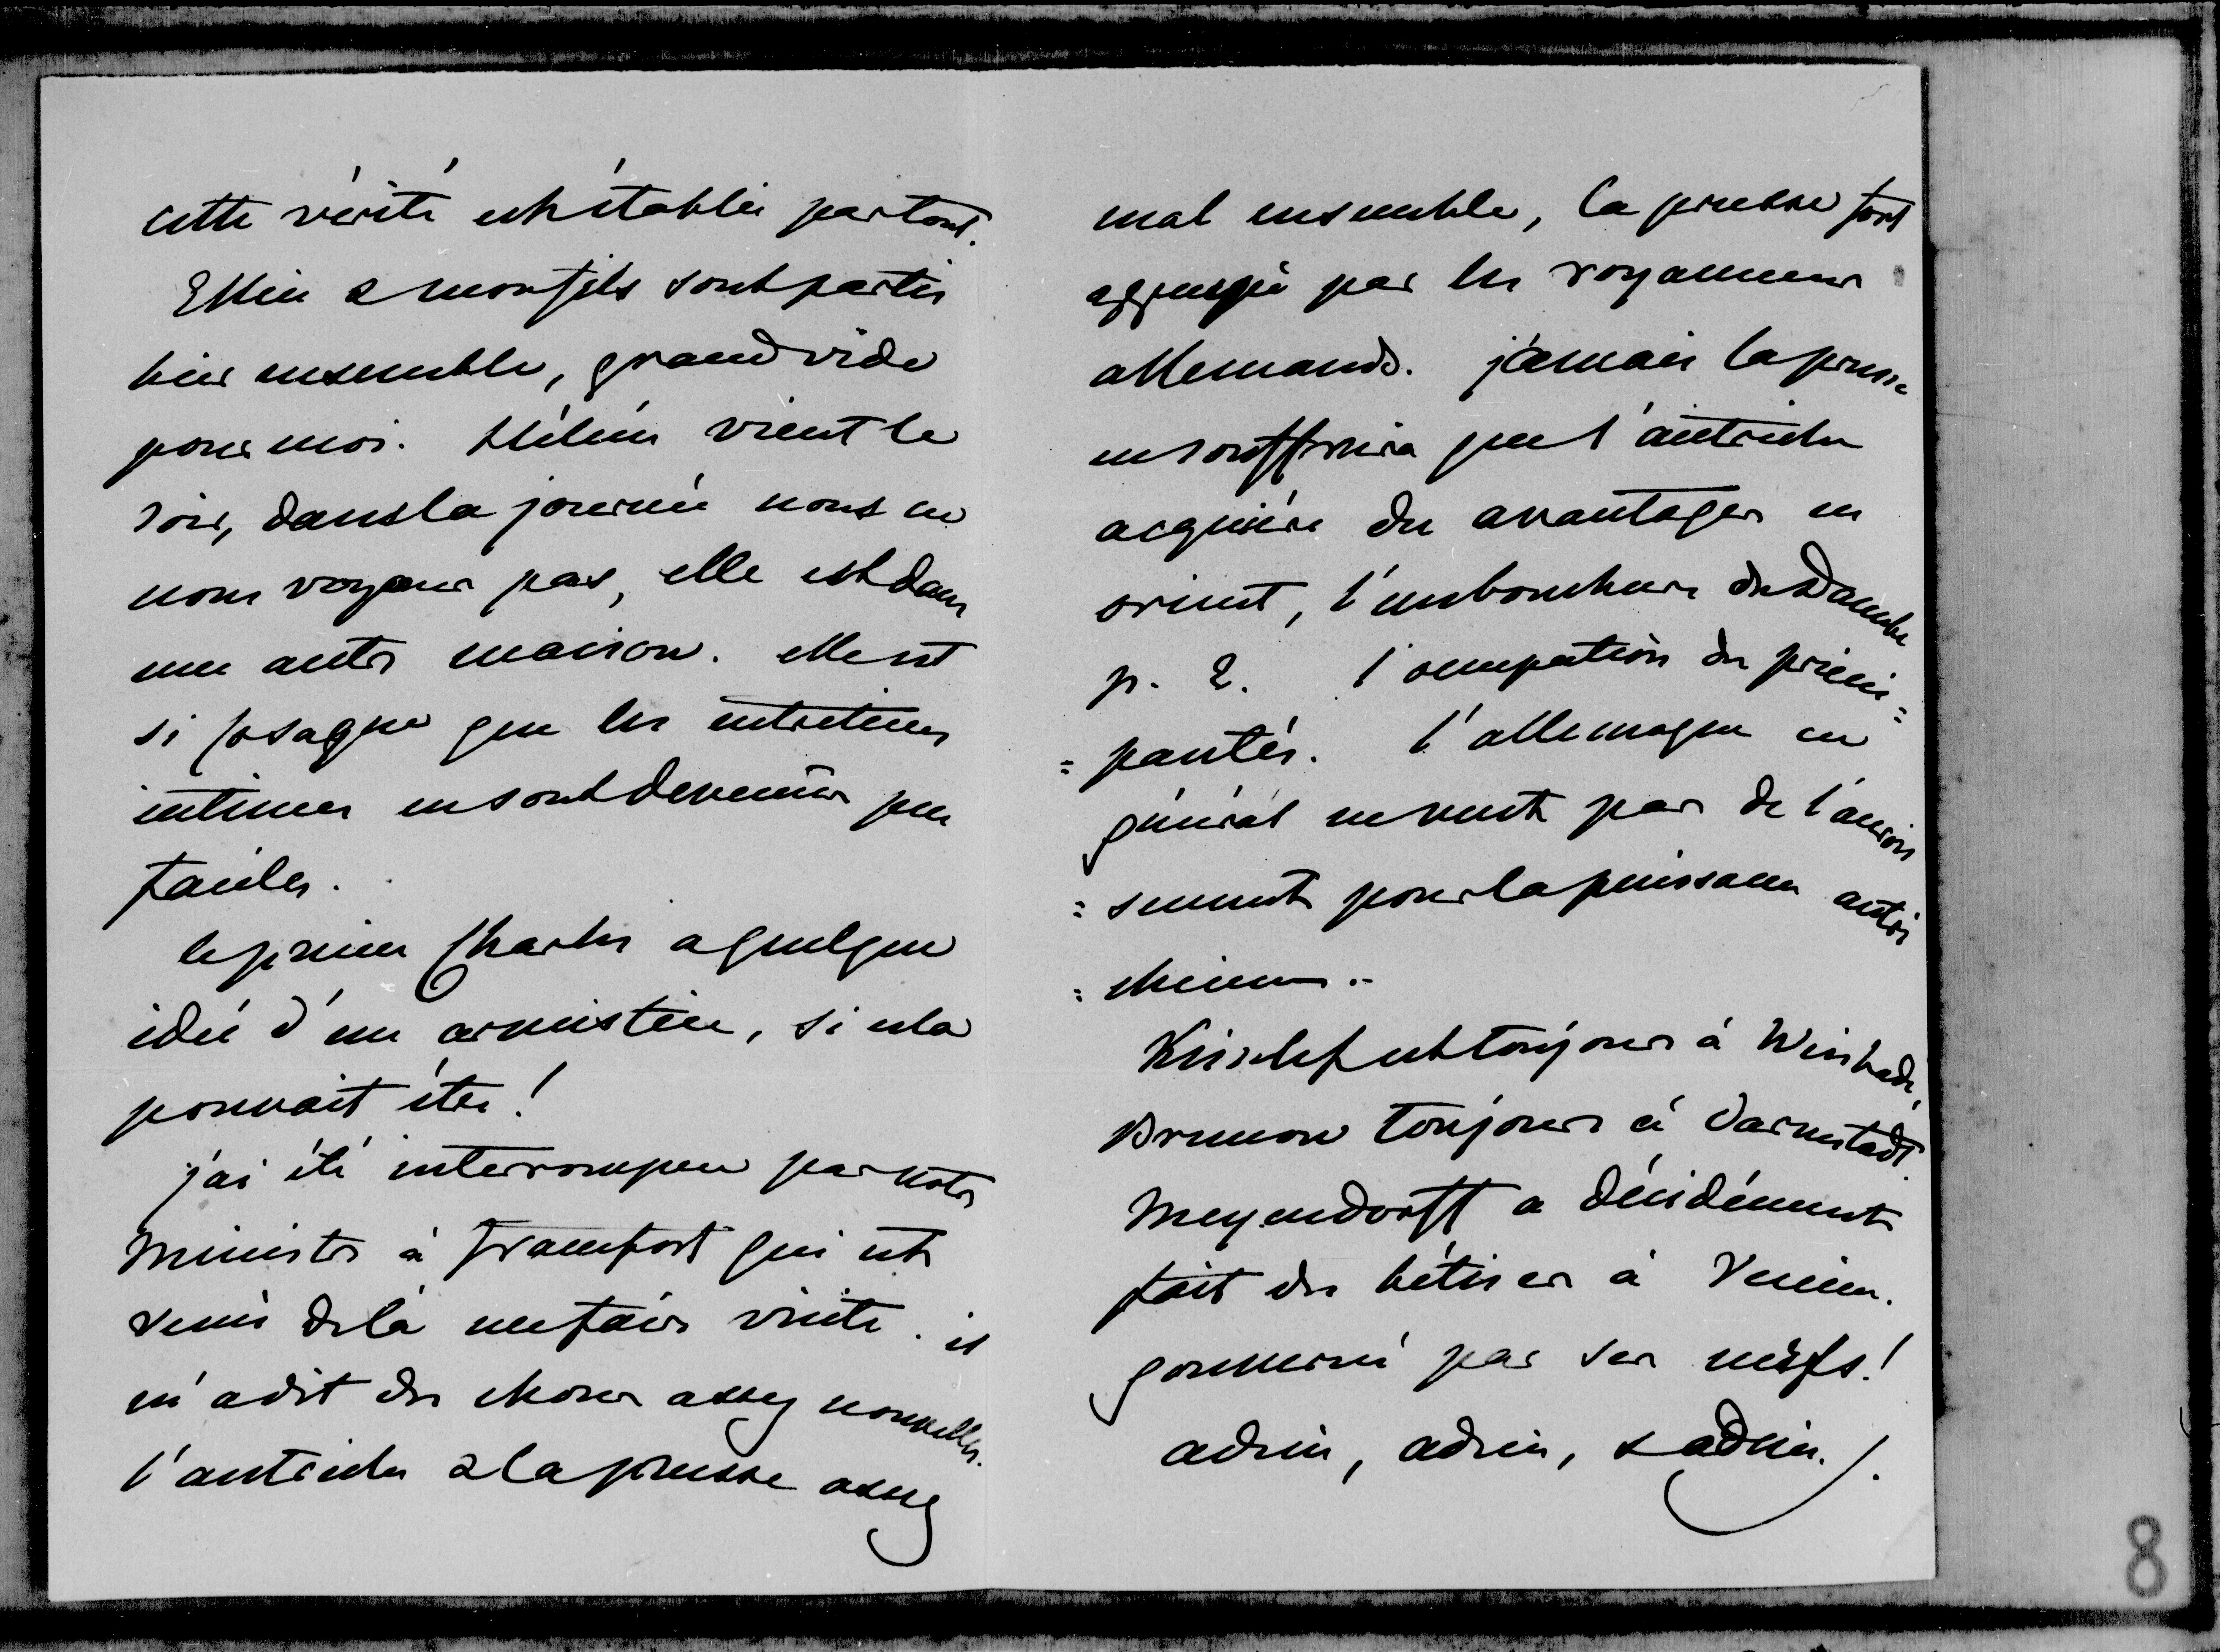 cette vérité est établie partout.
Ellice & mon fils sont partis
hier ensemble, grand vide
pour moi. Hélène vient le
soir, dans la journée nous ne
nous voyons pas, elle est dans
une autre maison. elle est
si que les entretiens
intimes en sont devenus peu
faciles.
le prince Charles a quelque
idée d'un armistice, si cela
pouvait être !
j'ai été interrompue par notre
Ministre à francfort qui est
venu de là me faire visite. il
m'a dit des choses assez nouvelles.
l'autriche & la prusse assez
mal ensemble, la prusse fort
appuyée par les royaumes
allemands. jamais la prusse
ne souffrira que l'autriche
acquière des avantages en
orient, l'embouchure du Danube
p. E. l'occupation des princi=
=pautés. l'allemagne en
général ne veut pas de l'accrois
=sement pour la puissance autri
=chienne.-
Kisselef est toujours à Wisbade,
Brunow toujours à Darmstadt.
Meyendorff a décidément
fait des bêtises à Vienne.
gouverné par ses nerfs !
adieu, adieu, & adieu. /.
8